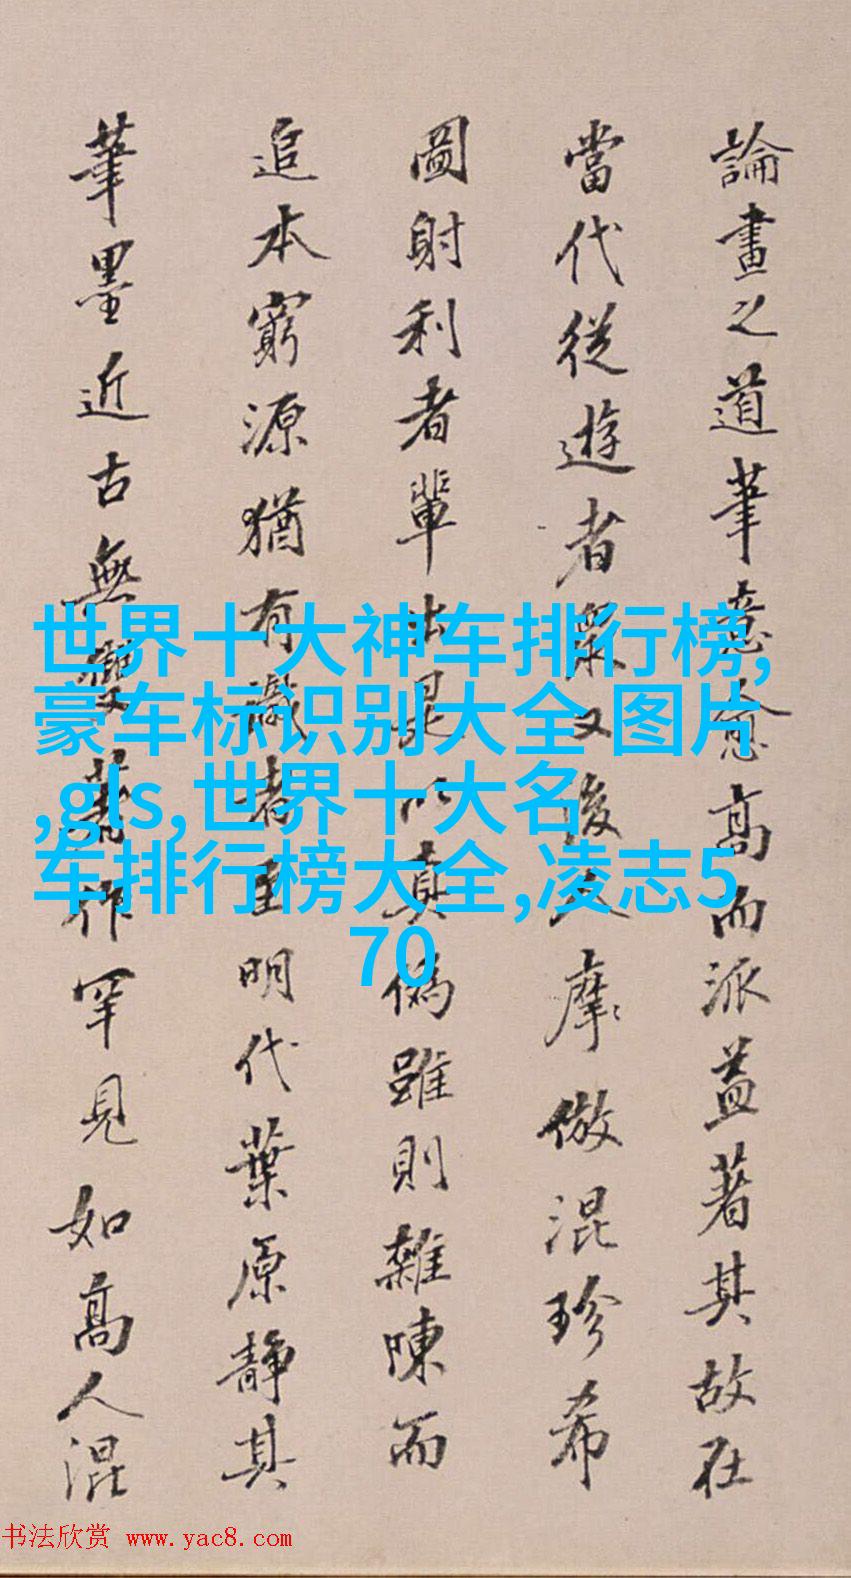 論畫之道筆意愈高而派益著其故在
當代從遊者衆又後人摩倣混珍希
圖射利者輩出是以真偽雖則雜陳而
追本窮源猶有識者至明代葉原靜其
筆墨近古無雙作罕見如高人混
世界十大神车排行榜,
豪车标识别大全 图片
,gls,世界十大名
车排行榜大全,凌志5
70
书法欣赏 www.yac8.com